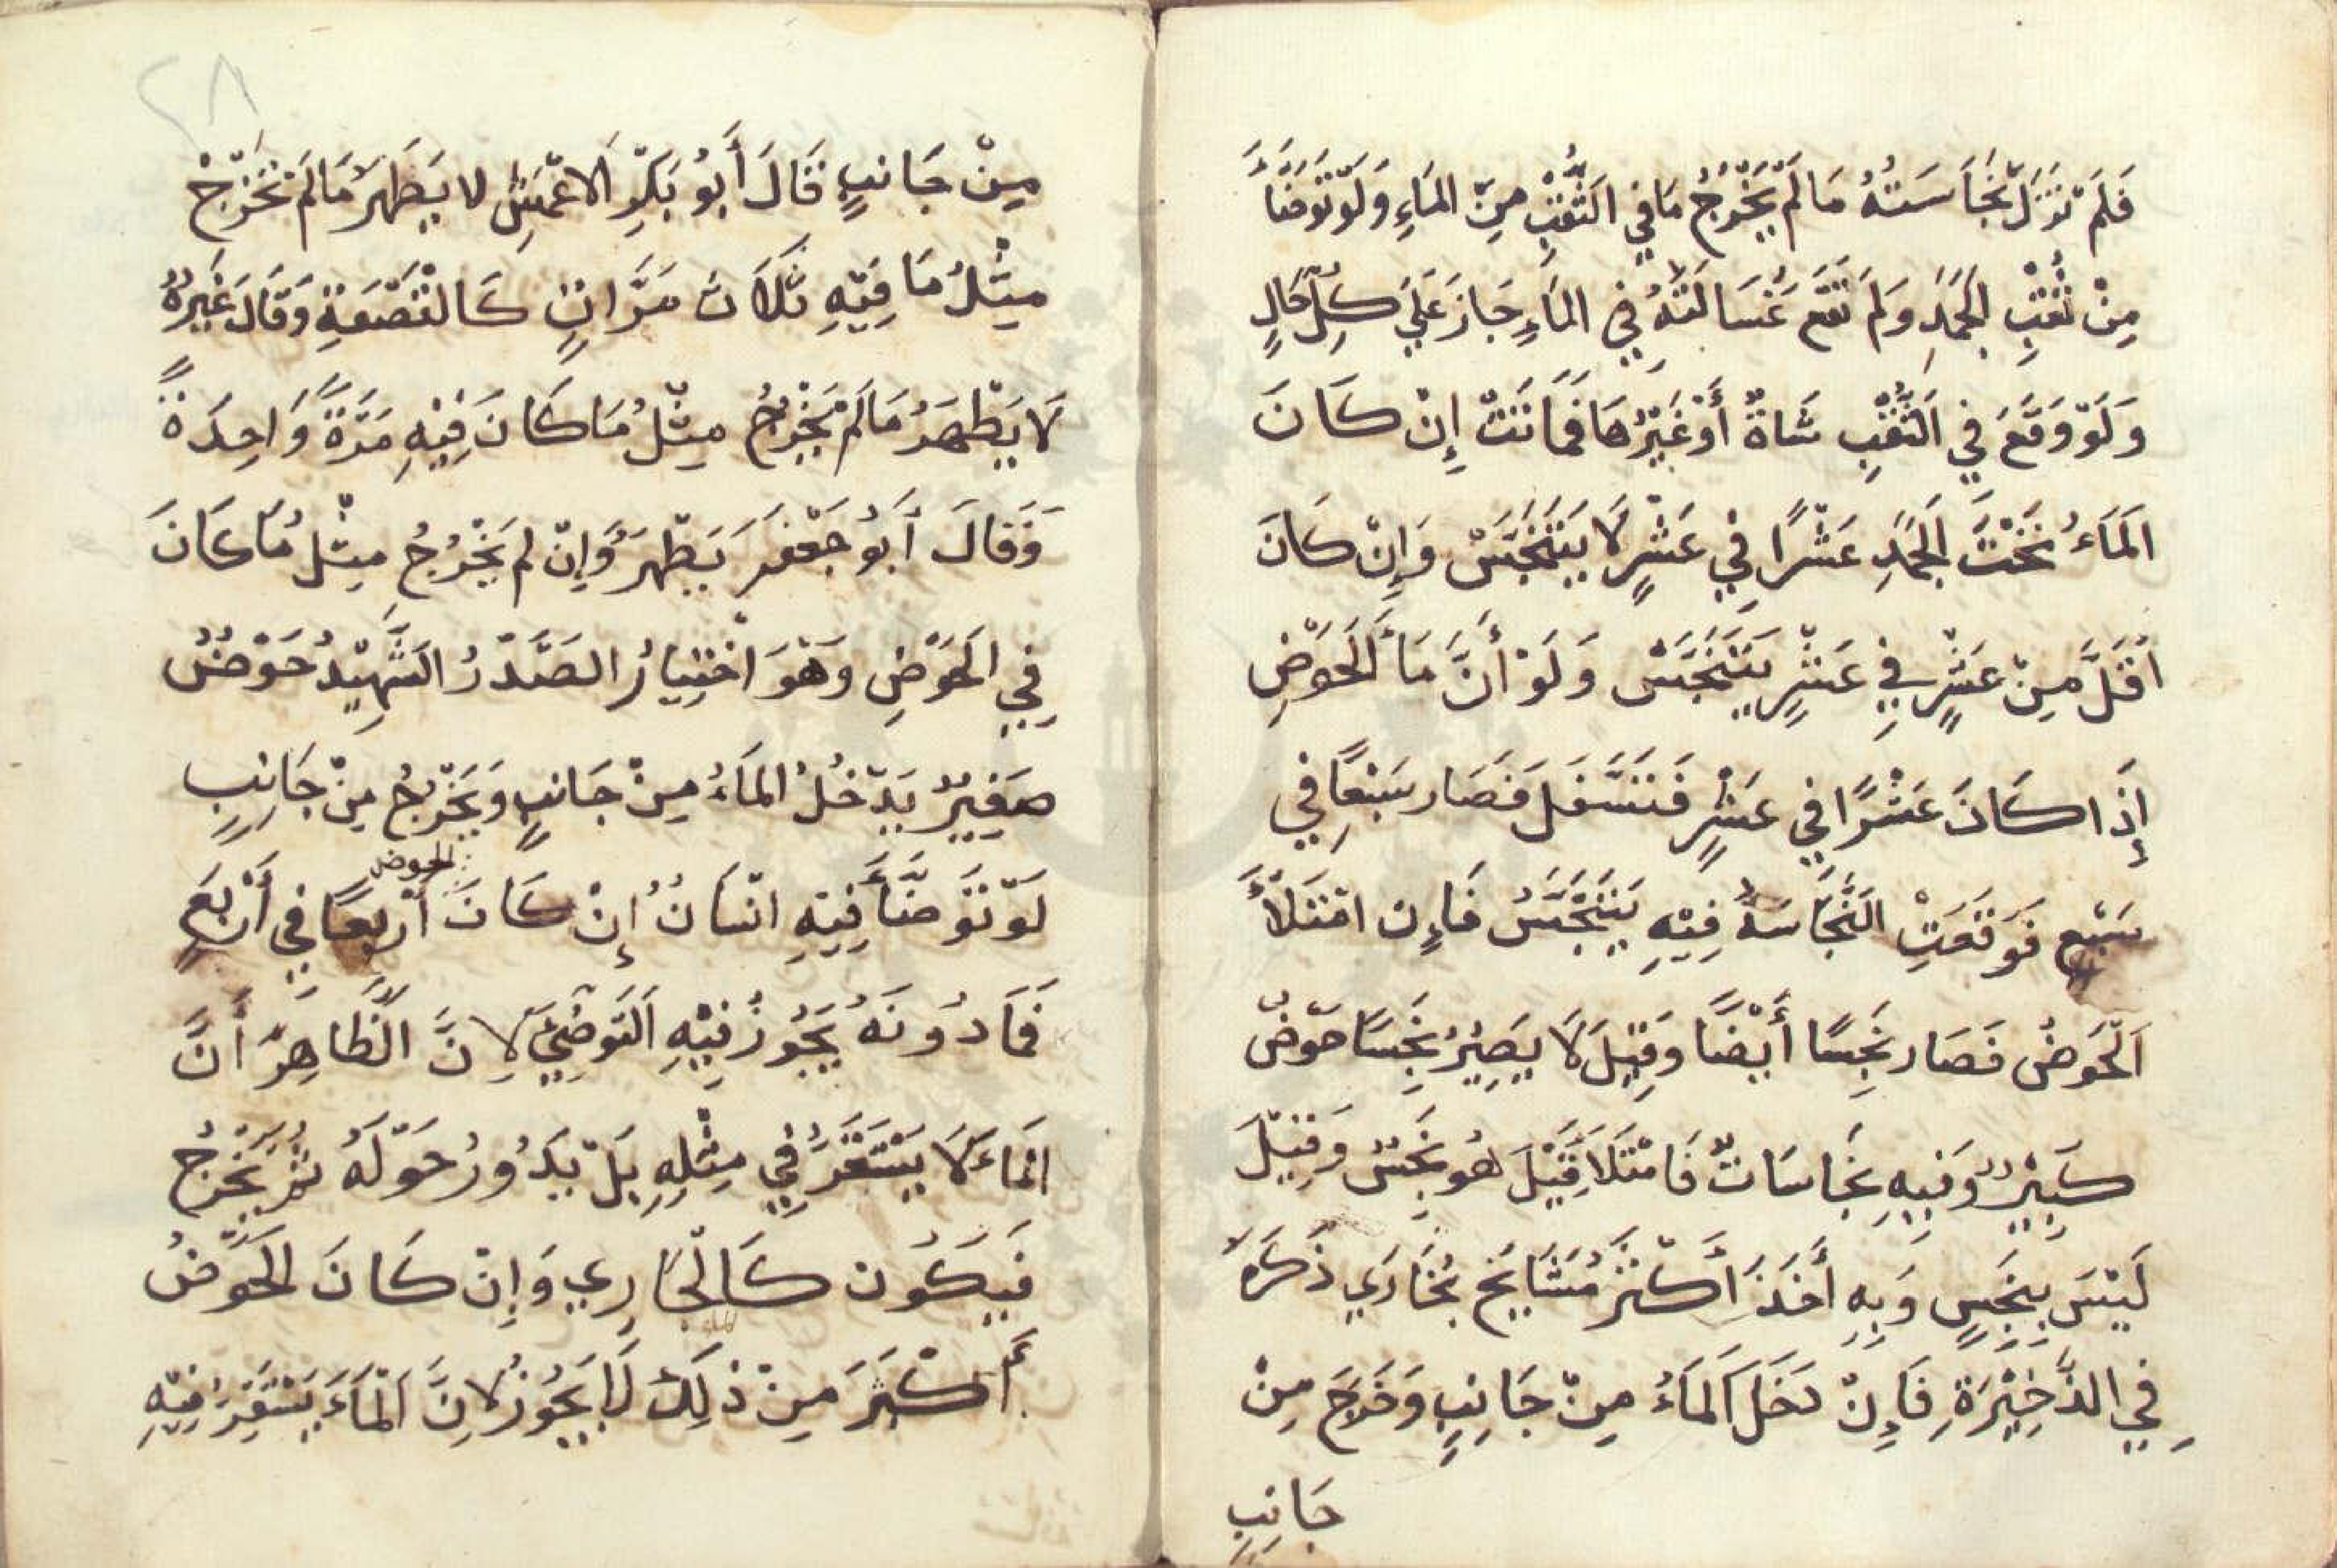 فَلَمْ تَزَلْ نَجَاسَتُهُ مَا لَمْ يَخْرُجْ مَا فِي الثُّقْبِ مِنَ المَاءِ وَلَوْ تَوَضَّأَ
مِنْ ثُقْبِ الجَمَدِ وَلَمْ تَقَع غُسَالَتُهُ فِي المَاءِ جَازَ عَلَى كُلِّ حَالٍ
وَلَوْ وَقَعَ فِي الثُّقْبِ شَاةٌ أَوْ غَيْرُهَا فَمَاتَتْ إِنْ كَانَ
المَاءُ تَحْتَ الجَمَدِ عَشْرًا فِي عَشْرٍ لَا يَتَنَجَّسْ وَإِنْ كَانَ
أَقَلَّ مِنْ عَشْرٍ فِي عَشْرٍ يَتَنَجَّسْ وَلَوْ أَنَّ مَاْ الْحَوْضِ
إِذَا كَانَ عَشْرًا فِي عَشْرٍ فَتَسَفَّلَ فَصَار سَبْعًا فِي
سَبْعٍ فَوَقَعَتِ النَّجَاسَةُ فِيْهِ يَتَنَجَّسُ فَإِن امْتَلَأَ
الْحَوْضُ فَصَار نَجِسًا أَيْضًا وَقِيْلَ لَا يَصِيْرُ نَجِسًا حَوْضٌ
كَبِيْرٌ وَفِيهِ نَجَاسَاتٌ فَامْتَلَأَ قِيْلَ هُو نَجِسٌ وَقِيْلَ
لَيْسَ بِنَجِسٍ وَبِهِ أَخَذَ أَكْثَرُ مَشَايِخ بُخَارَي ذَكَرَهُ
فِي الذَّخِيْرَةِ فَإِنْ دَخَلَ الْمَاءُ مِنْ جَانِبٍ وَخَرَجَ مِنْ
جَانِبٍ
٢٨
مِنْ جَانِبٍ قَالَ أَبُو بَكْرِ الاعْمَشِ لا يَطْهَرُ مَا لَمْ تَخْرُجْ
مِثْلُ مَا فِيْهِ ثَلَاثَ مَرَّاتٍ كَالْقَصْعَةِ وَقَالَ غَيْرُهُ
لَا يَطْهَرُ مَا لَمْ يَخْرُجْ مِثْلُ مَا كَانَ فِيْهِ مَرَّةً وَاحِدَةً
وَقَالَ أَبُو جَعْفَر يَطْهَرُ وَإِنْ لَم يَخْرُجْ مِثْلُ مَا كَانَ
فِي الْحَوْضِ وَهْوَ اخْتِيَارُ الصَّدْرُ الشَّهِيْدُ حَوْضٌ
صَغِيْرٌ يَدْخُلُ المَاءُ مِنْ جَانِبٍ وَيَخْرُجُ مِنْ جَانِبٍ
لَوْ تَوَضَّأَ فِيْهِ انْسَانٌ إِنْ كَانَ الحوض أَرْبَعًا فِي أَرْبَعٍ
فَمَا دُونَهُ يَجُوزُ فِيْهِ التَوَضِّي لِانَّ الظَّاهِرَ أَنَّ
المَاءَ لَا يَسْتَقِرُّ فِي مِثْلِهِ بَلْ يَدُورُ حَوْلَهُ ثُمَّ يَخْرُجُ
فَيَكُون كَالْجَارِي وَإِنْ كَانَ الْحَوْضُ
أَكْبَرَ مِنْ ذٰلِكَ لَا يَجُوزُ لِانَّ الْمَاءَ يَسْتَقِرُّ فِيْهِ